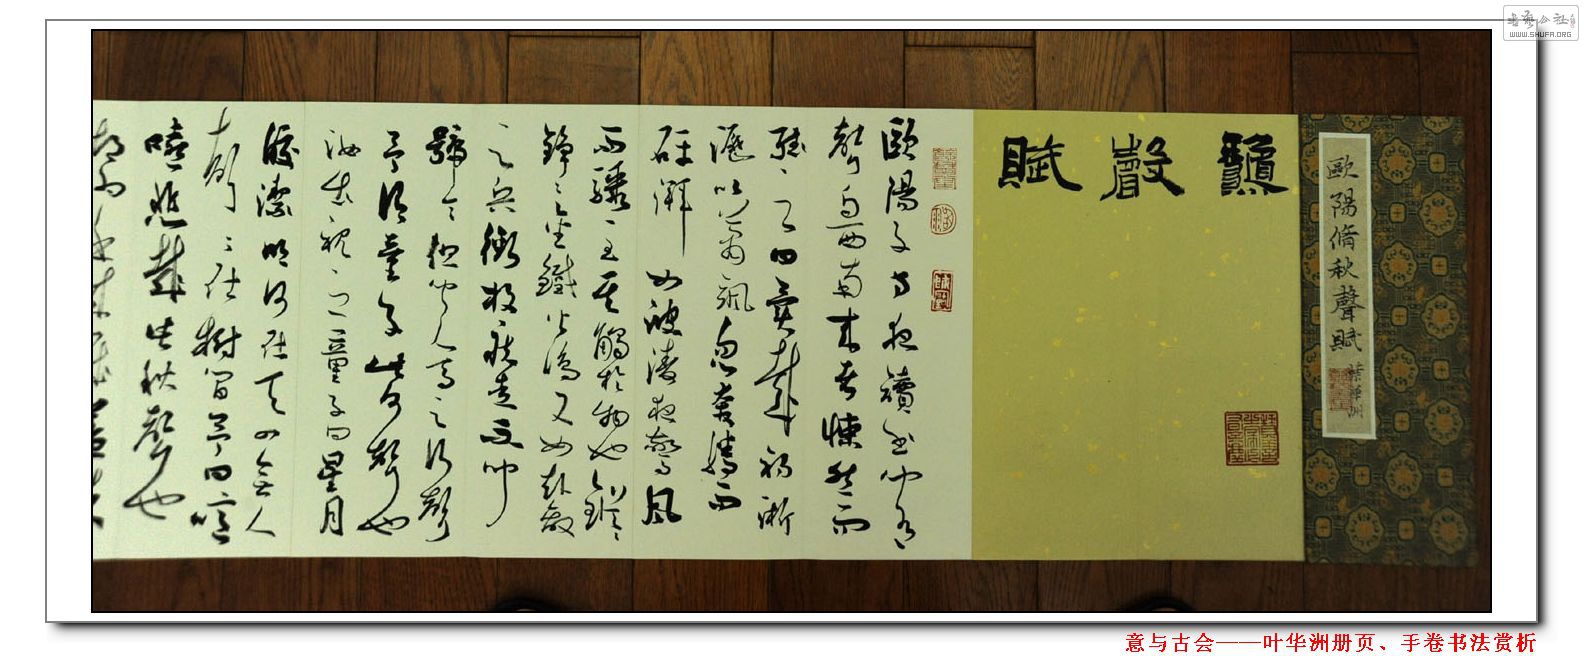 歐陽脩秋聲賦
葉華洲
龝聲賦
歐陽子方夜讀書聞有
聲自西南來者悚然而
聽之曰異哉初淅
瀝以蕭颯忽奔騰而
砰湃如波濤夜驚風
雨驟至其觸於物也鏦鏦
錚錚金鐵皆鳴又如赴敵
之兵銜枚疾走不聞
號令但聞人馬之行聲
予謂童子此何聲也
汝出視之童子曰星月
皎潔明河在天四無人
聲聲在樹間予曰噫
嘻悲哉此秋聲也
书艺公社
WWW.SHUFA.ORG
意与古会——叶华洲册页、手卷书法赏析